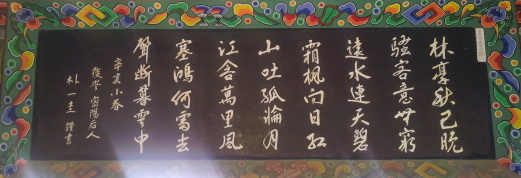 林亭秋已晚
騷客意無窮
遠水連天碧
霜楓向日紅
山吐孤輪月
江含萬里風
塞鴻何處去
聲斷暮雲中
辛亥小春
後學 密陽后人
朴一圭 謹書